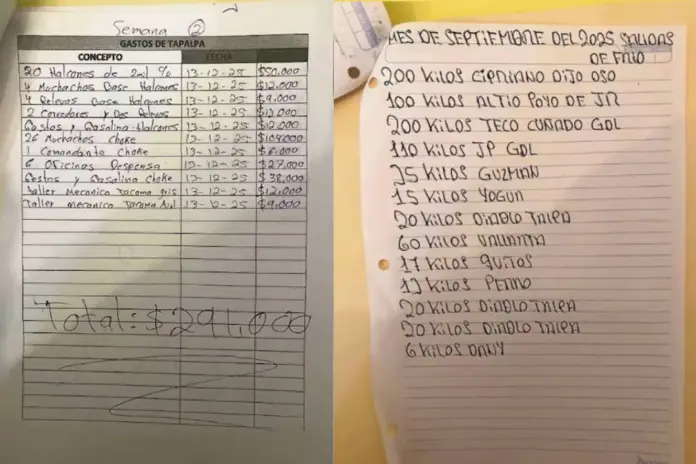 Semana 2
GASTOS DE TAPALPA
CONCEPTO FECHA
20 Halcones de 2mil % 13-12-25 $50.000
4 Muchachos Base Halcones 13-12-25 $12.000
4 Relevos Base Halcones 13-12-25 $9.000
2 Comedores y Dec Relevos 13-12-25 $12.000
Gastos y Gasolina-Halcones 13-12-25 $12.000
26 Muchachos Choke 13-12-25 $104.000
1 Comandante Choke 13-12-25 $6.000
6 Oficinas Despensa 13-12-25 $27.000
Gastos y Gasolina Choke 13-12-25 $38.000
Taller Mecanico Tacoma gris 13-12-25 $12.000
Taller mecanico Tacoma Azul 13-12-25 $9.000
Total: $291,000
MES DE SEPTIEMBRE DEL 2025 SALIDAS
DE FRIO
200 KILOS CIPRIANO DIJO OSO
100 KILOS ALTIO POYO DE JR
200 KILOS TECO CUÑADO GDL
110 KILOS JP GDL
25 KILOS GUZMAN
15 KILOS YOGUR
20 KILOS DIABLO TALPA
60 KILOS VALLARTA
17 KILOS GUITOS
12 KILOS PERRO
20 KILOS DIABLO TALPA
20 KILOS DIABLO TALPA
6 KILOS DANY